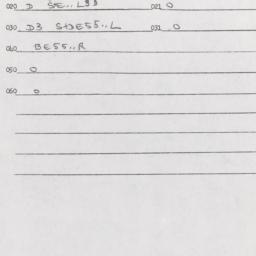 020 D SE..L33 021 0
030 D3 S+DE55..L 031 0
040 BE55..R
050 0
060 0